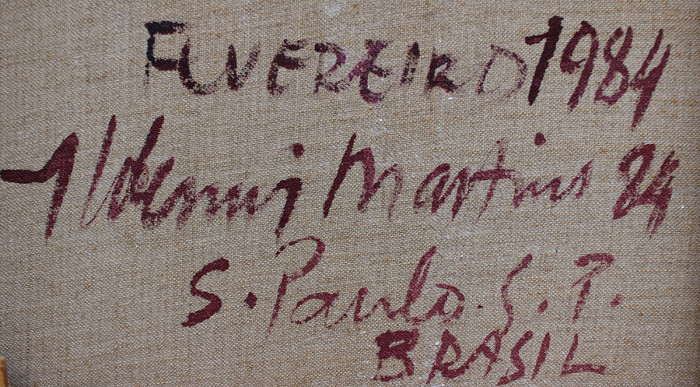 FEVEREIRO 1984
Aldemir Martins 84
S. Paulo. S. P.
BRASIL